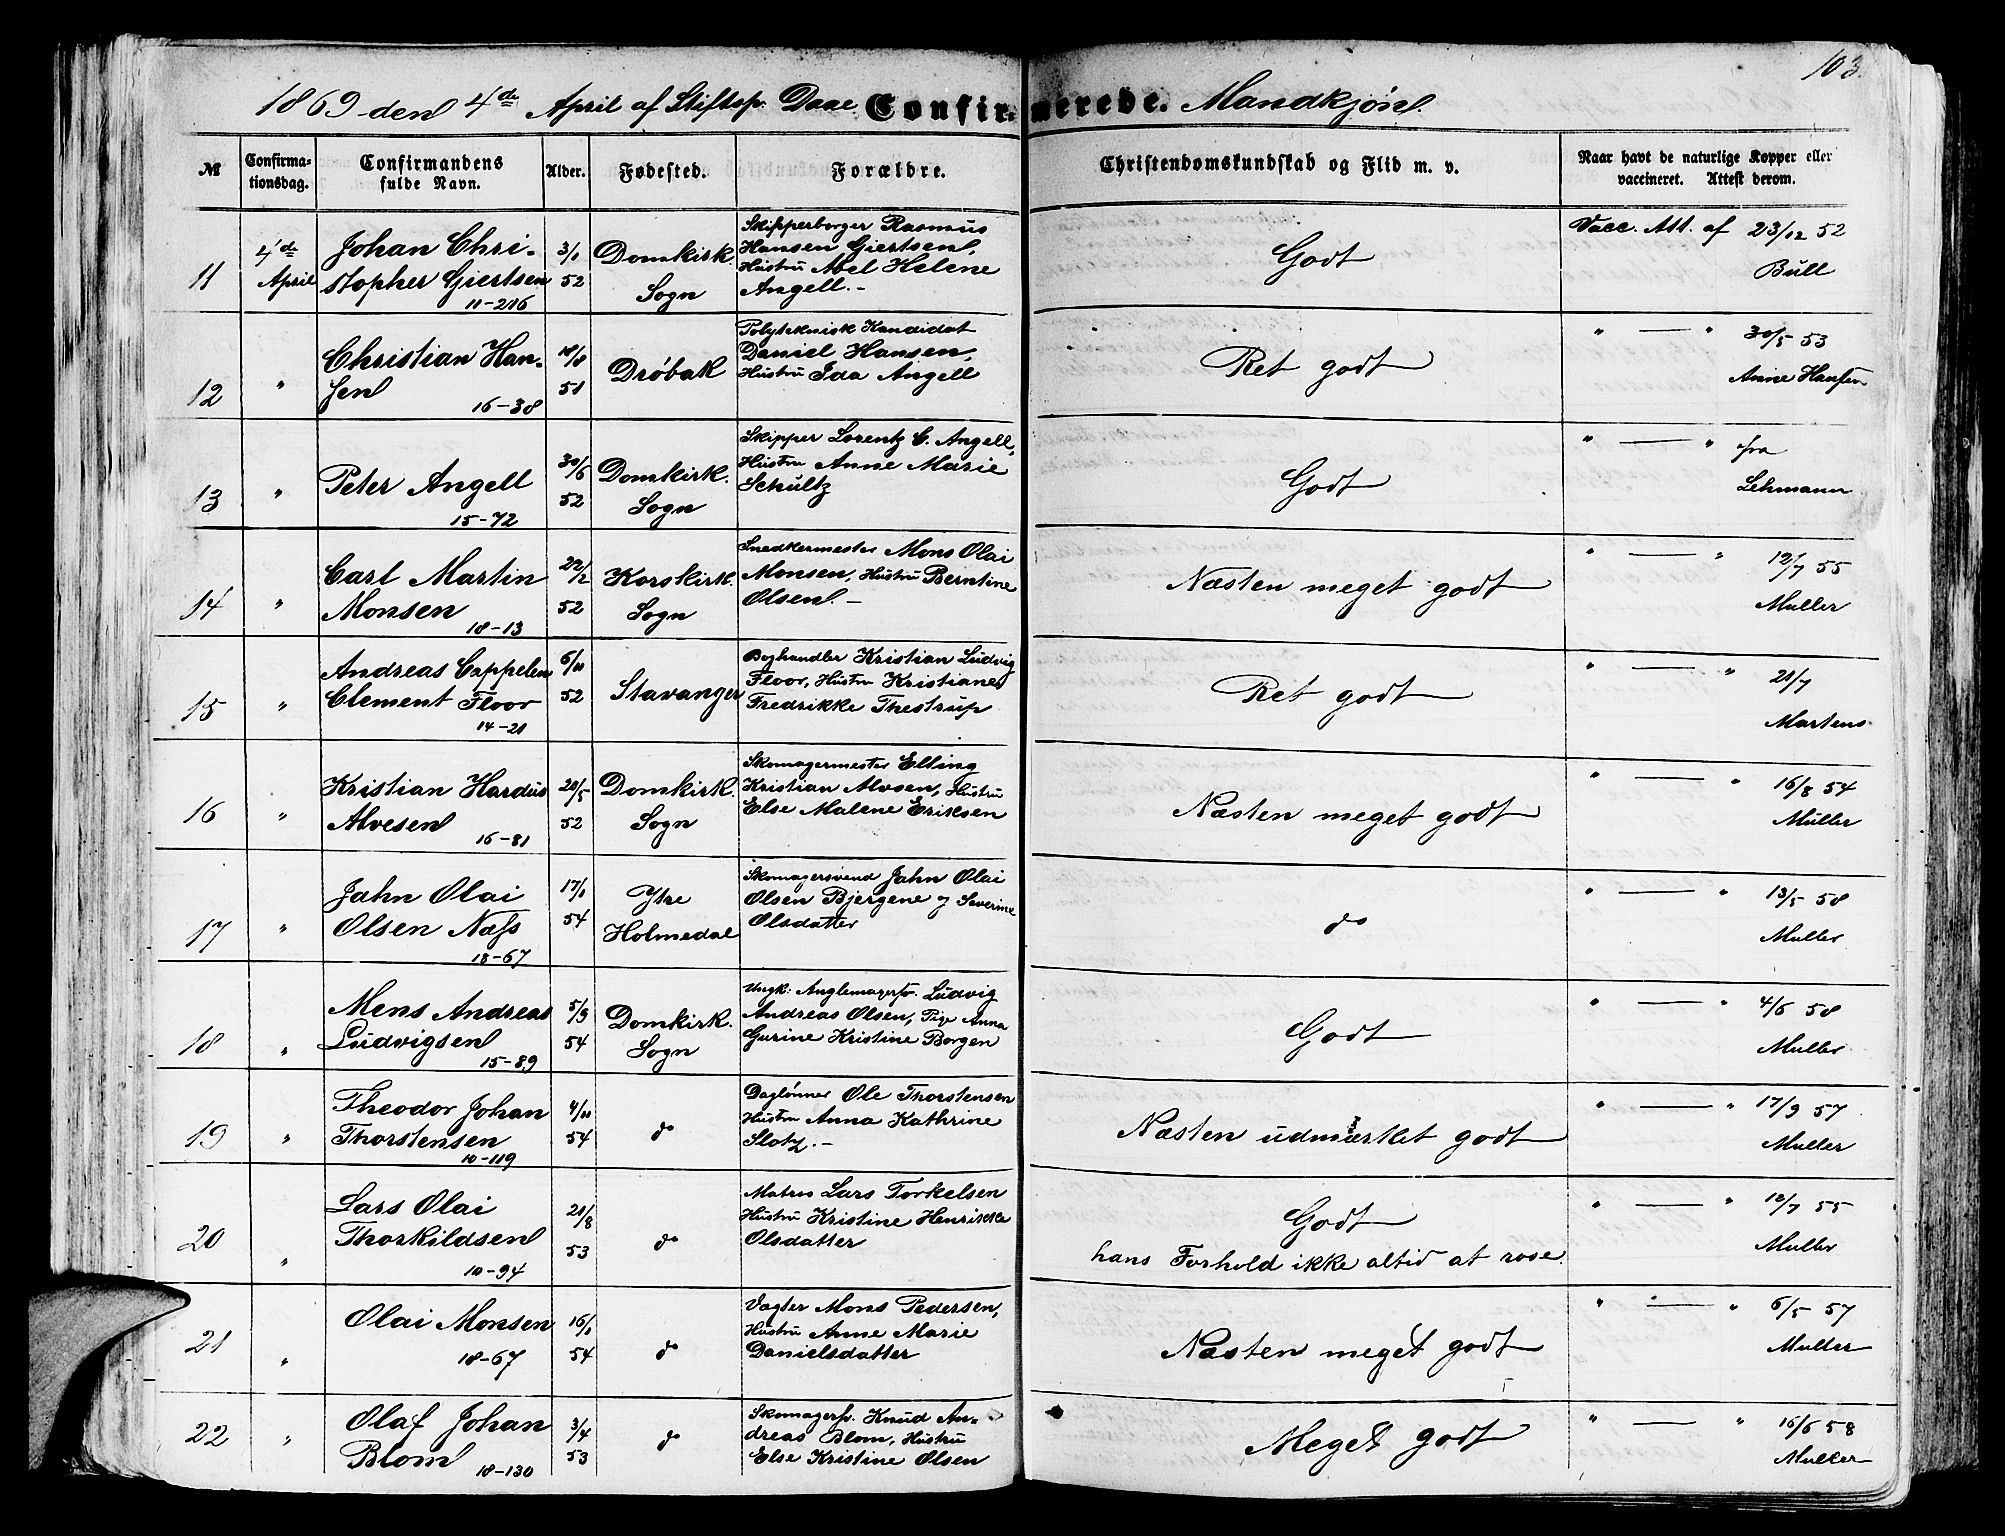 103.
1869 den 4de April af Stiftsp. Daae Confirmerede. Mandkjøn.
№
Confirmationsdag.
Confirmandens fulde Navn.
Alder.
Fødested.
Forældre.
Christendomskundskab og Flid m. v.
Naar havt de naturlige Kopper eller
vaccineret. Attest derom.
11
4de
April
Johan Chri-
stopher Giertsen
11-216
3/1
52
Domkirk.
Sogn
Skipperborger Rasmus
Hansen Giertsen,
Hustru Abel Helene
Angell.-
Godt
Vacc. Att. af 23/12 52
Bull
12
"
Christian Han-
sen
16-38
18/8
51
Drøbak
Polyteknisk Kandidat
Daniel Hansen,
Hustru Ida Angell
Ret godt
" — " 30/5 53
Anne Hansen
13
"
Peter Angell
15-72
30/6
52
Domkirk.
Sogn
Skipper Lorentz C. Angell,
Hustru Anne Marie
Schultz
Godt
" — " fra
Lehmann
14
"
Carl Martin
Monsen
18-13
22/2
52
Korskirk.
Sogn
Snedkermester Mons Olai
Monsen, Hustru Berntine
Olsen.-
Næsten meget godt
" — " 12/7 55
Muller
15
"
Andreas Cappelen
Clement Floor
14-21
6/11
52
Stavanger
Boghandler Kristian Ludvig
Floor, Hustru Kristiane
Fredrikke Thestrup
Ret godt
" — " 21/7
Martens
16
"
Kristian Hardus
Alvesen
16-81
28/5
52
Domkirk.
Sogn
Skomagermester Elling
Kristian Alvsen, Hustru
Else Malene Eriksen
Næsten meget godt
" — " 16/8 54
Müller
17
"
Jahn Olai
Olsen Næss
18-67
17/1
54
Ytre
Holmedal
Skomagersvend Jahn Olai
Olsen Bjergene og Severine
Olsdatter
do
" — " 13/5 58
Muller
18
"
Mens Andreas
Ludvigsen
15-89
5/9
54
Domkirk.
Sogn
Ungk: Anglemagersv. Ludvig
Andreas Olsen, Pige Anna
Gurine Kristine Borgen
Godt
" — " 4/6 58
Muller
19
"
Theodor Johan
Thorstensen
10-119
4/11
54
do
Daglønner Ole Thorstensen
Hustru Anna Kathrine
Slotz.-
Næsten udmærket godt
" — " 17/9 57
Muller
20
"
Lars Olai
Thorkildsen
10-94
21/8
53
do
Matros Lars Torkelsen
Hustru Kristine Henrikke
Olsdatter
Godt
hans Forhold ikke altid at rose.
" — " 12/7 55
Muller
21
"
Olai Monsen
18-67
16/1
54
do
Vagter Mons Pedersen,
Hustru Anne Marie
Danielsdatter
Næsten meget godt
" — " 6/5 57
Muller
22
"
Olaf Johan
Blom
18-130
3/4
53
do
Skomagersv. Knud An-
dreas Blom, Hustru
Else Kristine Olsen
Meget godt
" — " 16/6 58
Muller